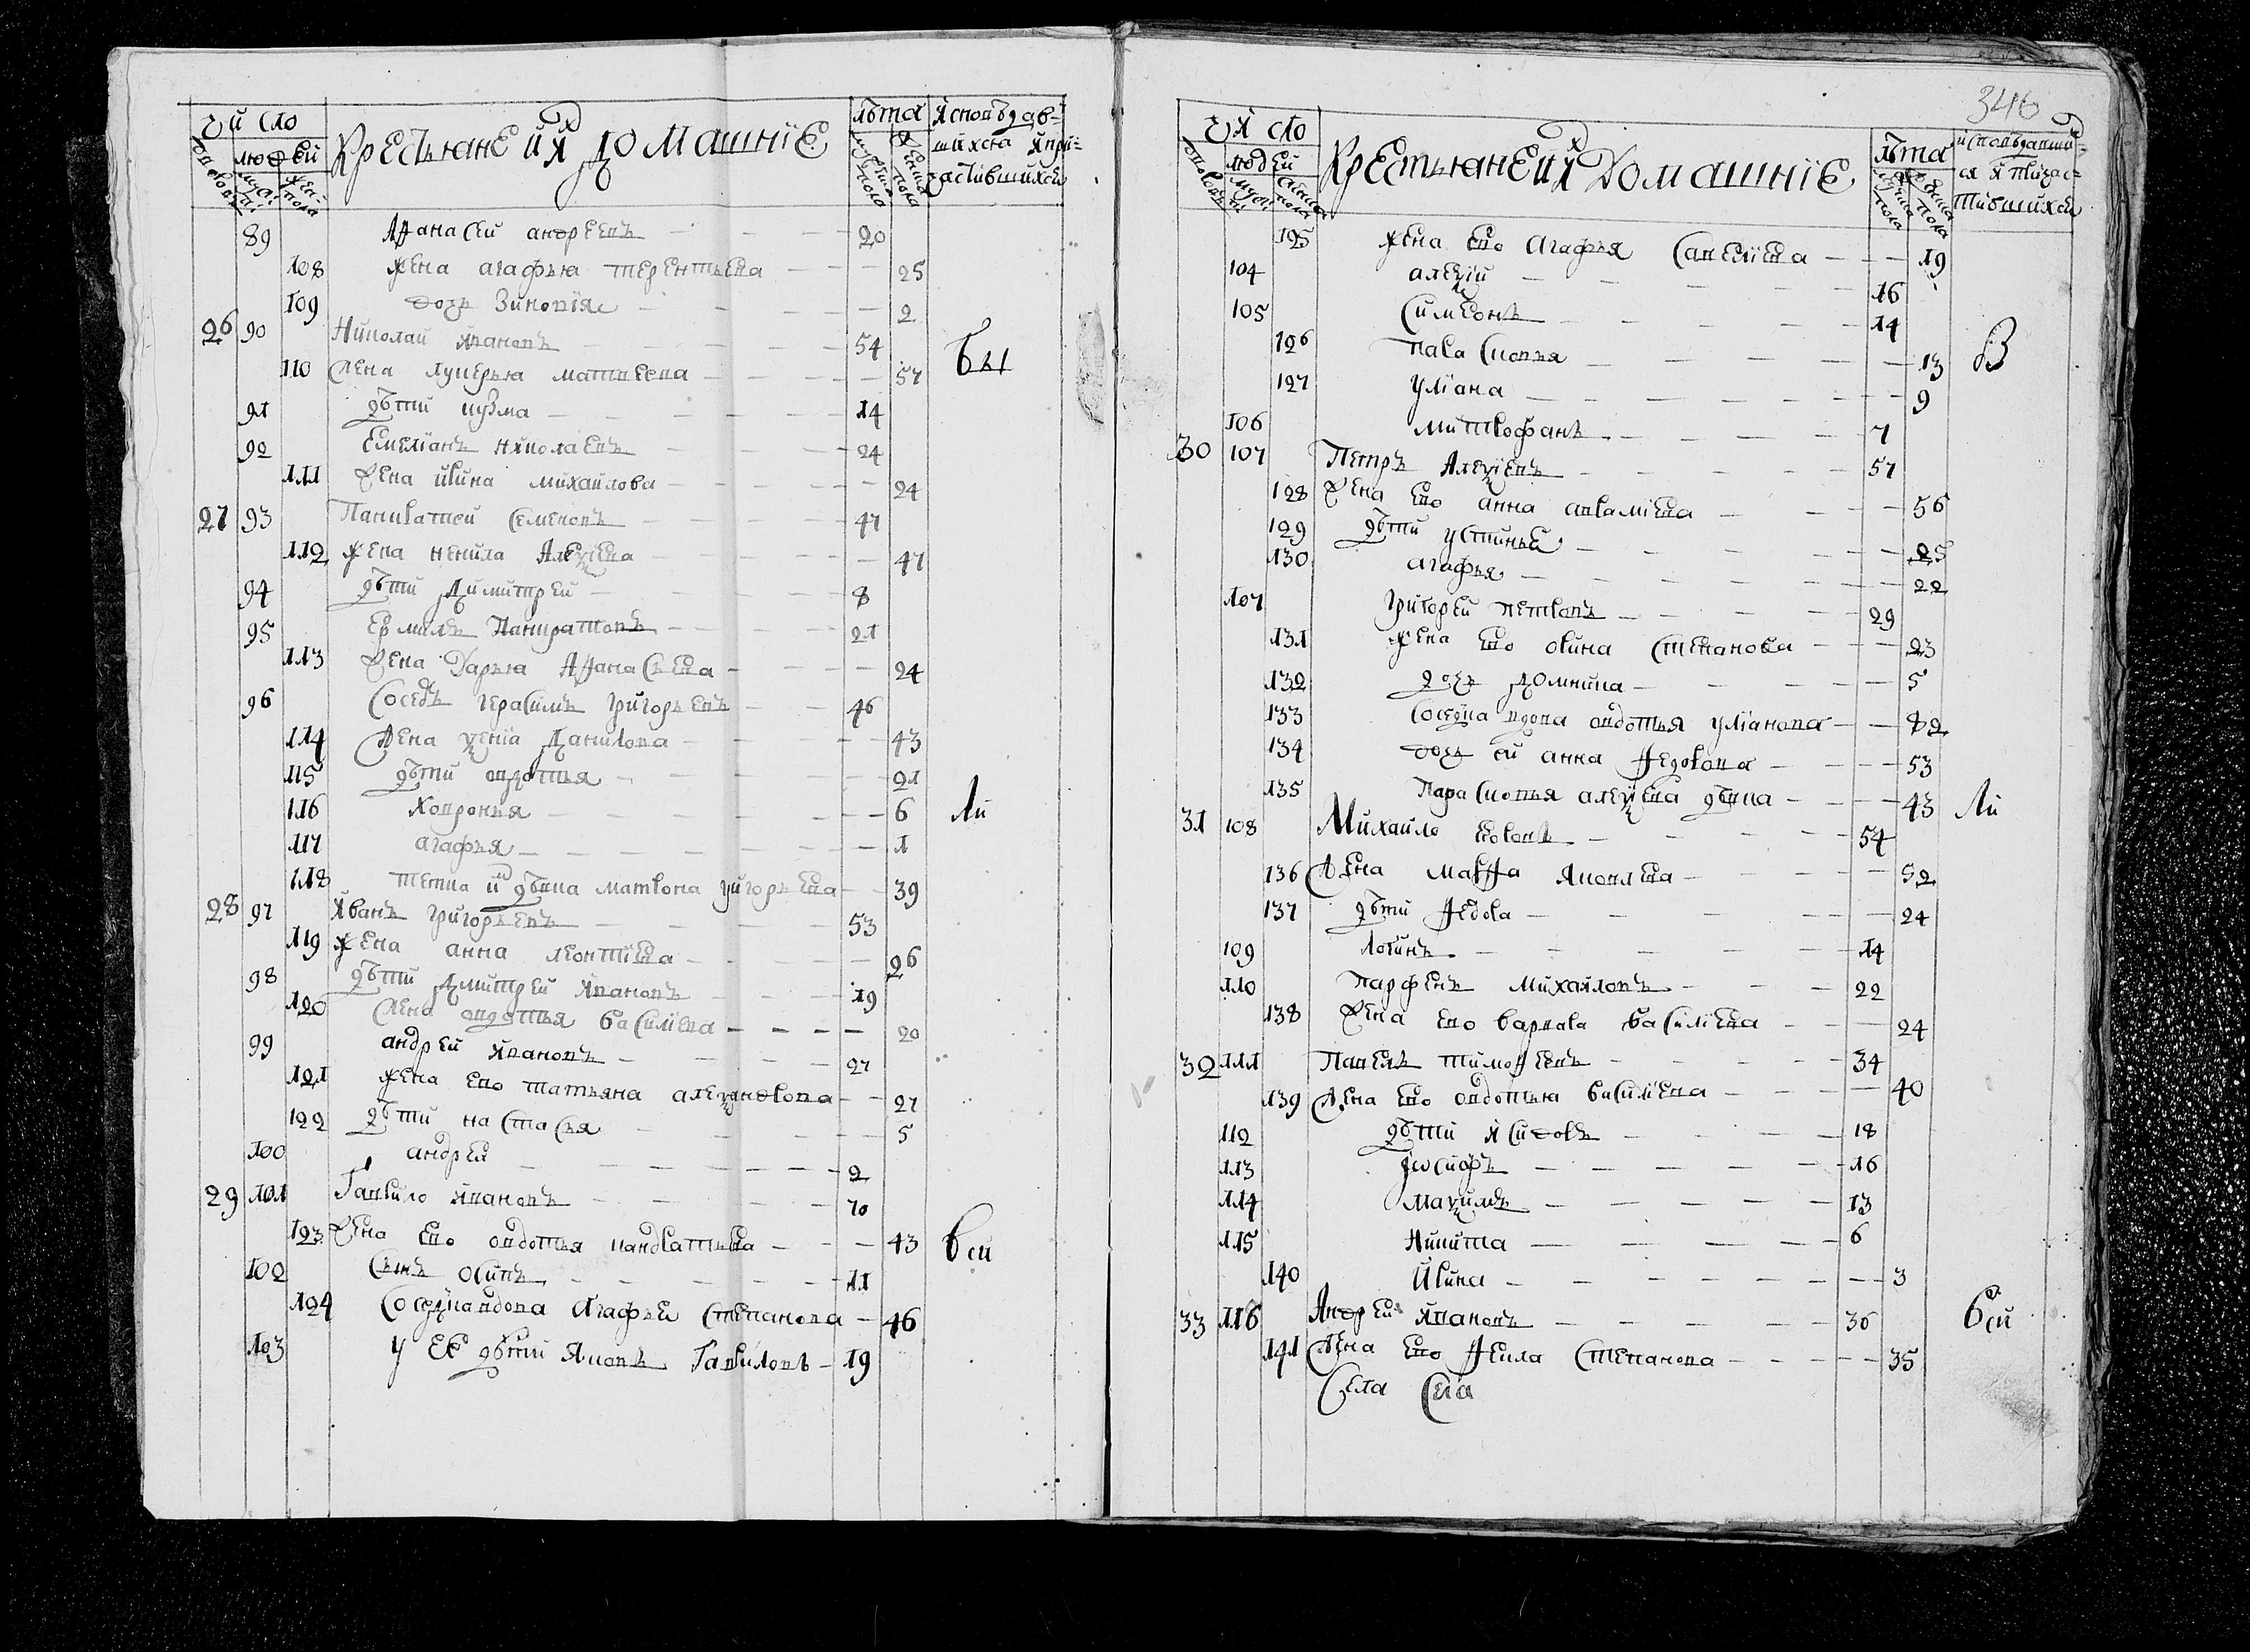 число
людей
Крестьяне и их домашние
лѣта
исповѣдав-
шихся и при-
частившихся
89 Афанасей андреевъ 20
108 жена агафья терентьева 25
109 дочь Зиновия 2
26 90 Николай ивановъ 54
110 Жена Лукерья матвеева 57
91 дѣти кузма 14
92 Емелианъ николаевъ 24
111 Жена ирина михаилова 24
27 93 Панкратей семеновъ 47
112 жена ненила Алеѯиева 47
94 дѣти Димитрей 8
95 Ермилъ Панкратовъ 21
113 Жена Дарья Афанасьева 24
96 Соседъ герасимъ григорьевъ 46
114 Жена ѯениа Данилова 43
115 дѣти овдотья 21
116 Ховронья 6
117 агафья 1
118 тетка и дѣвка матрона григорьева 39
28 97 Иванъ григорьевъ 53
119 жена анна леонтиева 26
98 дѣти Дмитрей ивановъ 19
120 Жена овдотья василиева 20
99 андрей ивановъ 27
121 жена ево татьяна алеѯандрова 27
122 дѣти настасья 5
100 андрей 2
29 101 Гаврило ивановъ 70
123 Жена ево овдотья кандратьева 43
102 Сынъ осипъ 11
124 Соседка вдова Агафья степанова 46
103 у ее дѣти Яковъ Гавриловъ 19
Бы
ли
вси
346
число
людей
Крестьяне и их Домашние
лѣта
исповѣдавши-
ся и причас-
тившихся
125 жена ево Агафья Савелиева 19
104 алеѯий 16
105 Симеонъ 14
126 парасковья 13
127 улиана 9
106 митрофанъ 7
30 107 Петръ Алеѯиевъ 57
128 Жена ево анна аврамиева 56
129 дѣти устинья 25
130 агафья 22
107 григорей петровъ 29
131 жена ево орина степанова 23
132 дочь Домника 5
133 соседка вдова овдотья улианова 82
134 дочь ей анна Федорова 53
135 Парасковья алеѯиева дѣвка 43
31 108 Михайло егоровъ 54
136 Жена марфа яковлева 52
137 дѣти Федора 24
109 логинъ 14
110 парфенъ михайловъ 22
138 Жена ево варвара василиева 24
32 111 Павелъ тимофеевъ 34
139 Жена ево овдотья василиева 40
112 дѣти исидоръ 18
113 иосифъ 16
114 маѯимъ 13
115 никита 6
140 Ирина 3
33 116 Андрей ивановъ 36
141 Жена ево Фекла степанова 35
Села Сега
В
ли
вси